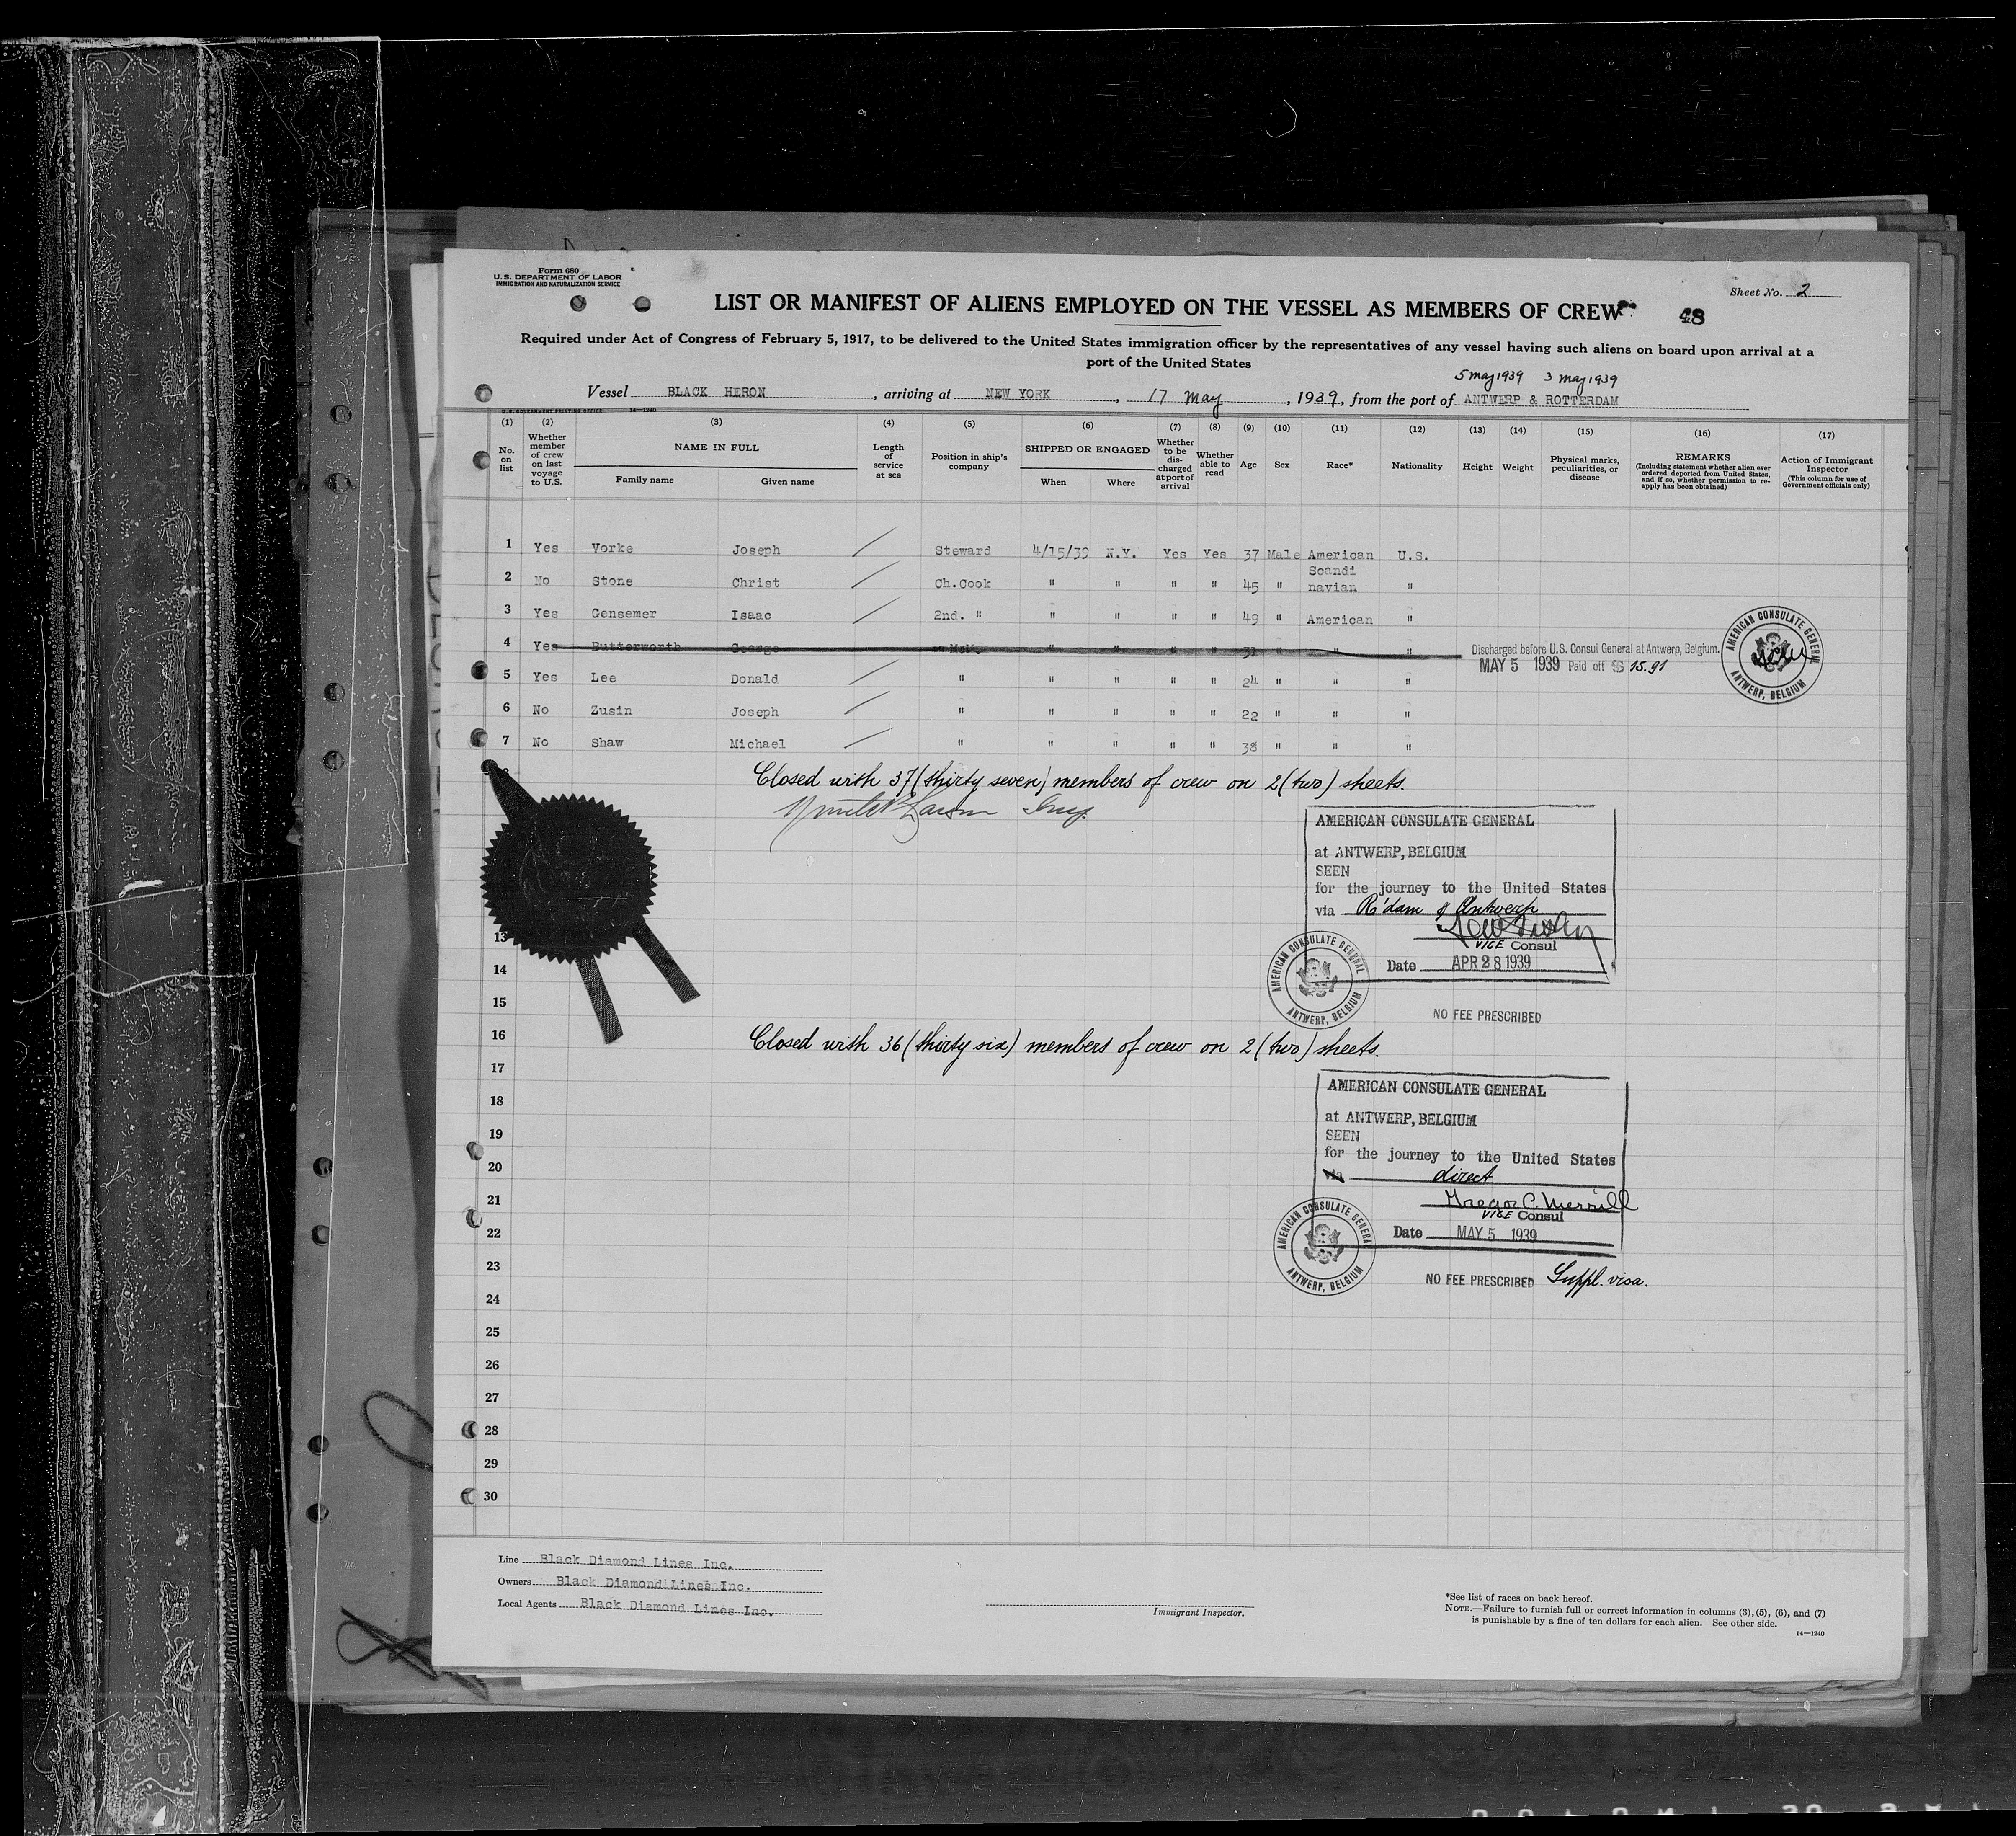 Form 680
U.S. DEPARTMENT OF LABOR
IMMIGRATION AND NATURALIZATION SERVICE
Sheet No. 2
LIST OR MANIFEST OF ALIENS EMPLOYED ON THE VESSEL AS MEMBERS OF CREW
48
Required under Act of Congress of February 5, 1917, to be delivered to the United States immigration officer by the representatives of any vessel having such aliens on board upon arrival at a
port of the United States
5 May 1939 3 May 1939
Vessel BLACK HERON, arriving at NEW YORK, 17 May, 1939, from the port of ANTWERP & ROTTERDAM
U.S. GOVERNMENT PRINTING OFFICE 14—1240
(1) (2) (3) (4) (5) (6) (7) (8) (9) (10) (11) (12) (13) (14) (15) (16) (17)
No. on list
Whether member of crew on last voyage to U.S.
NAME IN FULL
Family name Given name
Length of service at sea
Position in ship's company
SHIPPED OR ENGAGED
When Where
Whether to be discharged at port of arrival
Whether able to read
Age
Sex
Race*
Nationality
Height
Weight
Physical marks, peculiarities, or disease
REMARKS
(Including statement whether alien ever ordered deported from United States, and if so, whether permission to reapply has been obtained)
Action of Immigrant Inspector
(This column for use of Government officials only)
1 Yes Vorke Joseph / Steward 4/15/39 N.Y. Yes Yes 37 Male American U.S.
2 No Stone Christ / Ch.Cook " " " " 45 " Scandi navian "
3 Yes Gensemer Isaac / 2nd. " " " " " 49 " American "
4 Yes Butterworth George " " " " 31 " " "
Discharged before U.S. Consul General at Antwerp, Belgium.
MAY 5 1939 Paid off $ 15.91
AMERICAN CONSULATE GENERAL ANTWERP, BELGIUM
5 Yes Lee Donald / " " " " " 24 " " "
6 No Zusin Joseph / " " " " " 22 " " "
7 No Shaw Michael / " " " " " 38 " " "
Closed with 37 (thirty seven) members of crew on 2 (two) sheets.
AMERICAN CONSULATE GENERAL
at ANTWERP, BELGIUM
SEEN
for the journey to the United States
via R'dam & Antwerp
VICE Consul
Date APR 28 1939
AMERICAN CONSULATE GENERAL ANTWERP, BELGIUM
NO FEE PRESCRIBED
13
14
15
16
Closed with 36 (thirty six) members of crew on 2 (two) sheets.
17
18
19
20
21
22
23
24
25
26
27
28
29
30
AMERICAN CONSULATE GENERAL
at ANTWERP, BELGIUM
SEEN
for the journey to the United States
via direct
Gregor C. Merrill
VICE Consul
Date MAY 5 1939
AMERICAN CONSULATE GENERAL ANTWERP, BELGIUM
NO FEE PRESCRIBED Suppl. visa.
Line Black Diamond Lines Inc.
Owners Black Diamond Lines Inc.
Local Agents Black Diamond Lines Inc.
Immigrant Inspector.
*See list of races on back hereof.
NOTE.—Failure to furnish full or correct information in columns (3), (5), (6), and (7)
is punishable by a fine of ten dollars for each alien. See other side.
14—1240